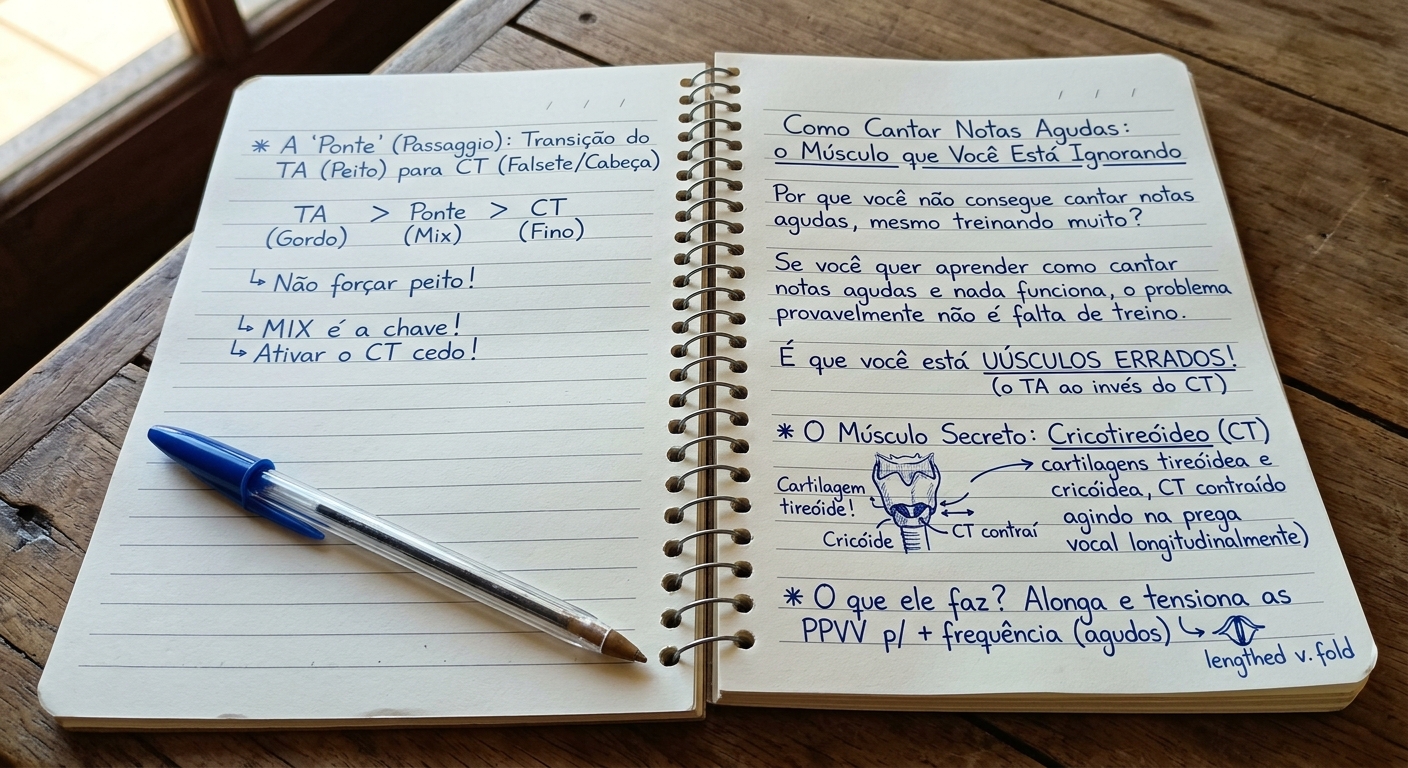 * A 'Ponte' (Passaggio): Transição do
TA (Peito) para CT (Falsete/Cabeça)
TA > Ponte > CT
(Gordo) (Mix) (Fino)
↳ Não forçar peito!
↳ MIX é a chave!
↳ Ativar o CT cedo!
/ / /
/ / /
Como Cantar Notas Agudas:
o Músculo que Você Está Ignorando
Por que você não consegue cantar notas
agudas, mesmo treinando muito?
Se você quer aprender como cantar
notas agudas e nada funciona, o problema
provavelmente não é falta de treino.
É que você está UÚSCULOS ERRADOS!
(o TA ao invés do CT)
* O Músculo Secreto: Cricotireóideo (CT)
Cartilagem
tireóide!
Cricóide
CT contraí
cartilagens tireóidea e
cricóidea, CT contraído
agindo na prega
vocal longitudinalmente)
* O que ele faz? Alonga e tensiona as
PPVV p/ + frequência (agudos) ↳
lengthed v. fold